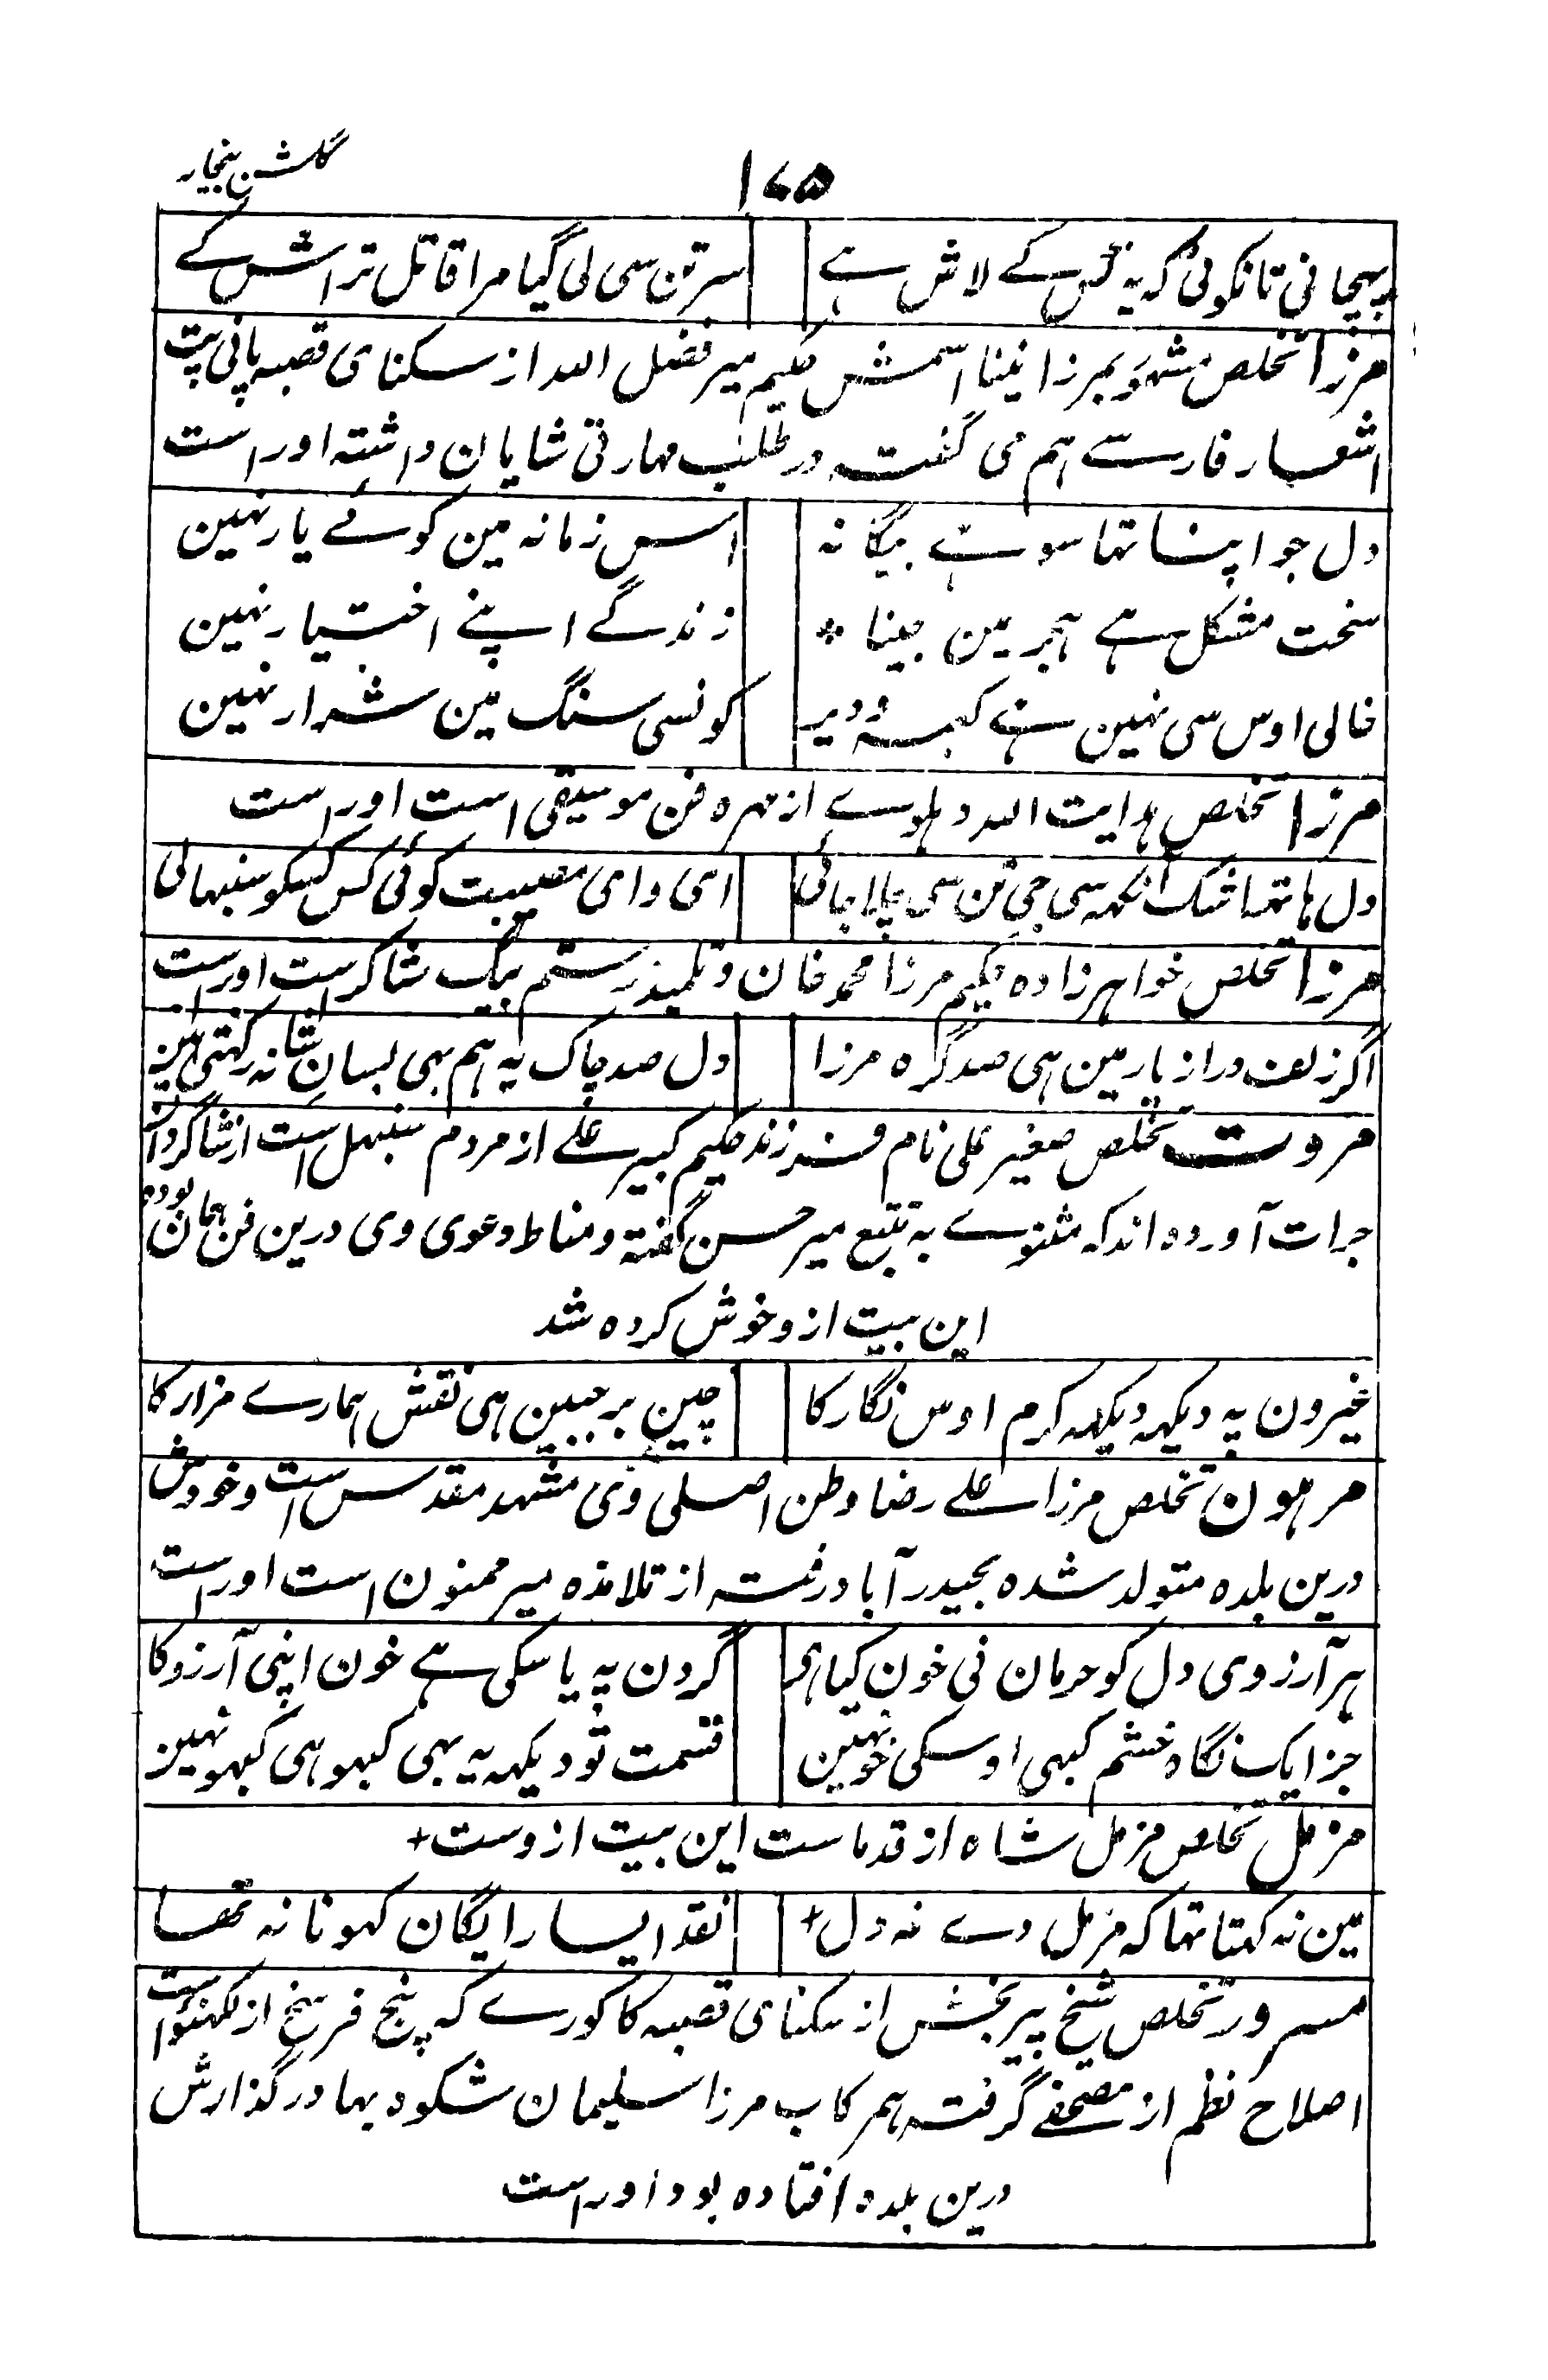 گلشن بیخار
۱۷۵
پہچانی تا نکوئی کہ یہ کس کے لاش ہے سر تن سی لی گیا مرا قاتل تراش کے
مرزا تخلص مشہور بمرزا نینا اسمش حکیم میر فضل اللہ از سکنای قصبہ پانی پت
اشعار فارسے ہم می گفت در طب مہارتی شایان داشتہ اوراست
دل جو اپنا تھا سو ہے بیگانہ اس زمانہ مین کوئے یار نہین
سخت مشکل ہے ہجر مین جینا * زندگے اپنے اختیار نہین
خالی اوس سی نہین ہے کعبہ و دیر کونسی سنگ مین شرار نہین
مرزا تخلص ہدایت اللہ دہلوے از مہرہ فن موسیقی است اوراست
دل ہاتھ اشک آنکہہ سی جی تن سی چلا جائی ای وای مصیبت کوئی کس کسکو سنبھالی
مرزا تخلص خواہرزادہ حکیم مرزا محمد خان و تلمیذ رستم بیگ شاکر ست اوراست
اگر زلف دراز یار مین ہی صد گرہ مرزا دل صد چاک یہ ہم بہی بسان شانہ رکہتی ہین
مروت تخلص صغیر علی نام فرزند حکیم کبیر علے از مردم سنبہل است از شاگردان
جرات آوردہ اند کہ مثنوے بہ تتبع میر حسن گفتہ و مناط دعوی وی درین فن ہمان بودہ
این بیت ازو خوش کردہ شد
غیرون پہ دیکہہ دیکہہ کرم اوس نگار کا چین بر جبین ہی نقش ہمارے مزار کا
مرہون تخلص مرزا علے رضا وطن اصلی وی مشہد مقدس است و خودش
درین بلدہ متولد شدہ بحیدرآباد رفتہ از تلامذہ میر ممنون است اوراست
ہر آرزوی دل کو حرمان نی خون کیا ہی گردن پہ یاسکی ہے خون اپنی آرزو کا
جز ایک نگاہ خشم کبہی اوسکی خو نہین قسمت تو دیکہہ یہ بہی کبہو ہی کبہو نہین
مزمل تخلص مزمل شاہ از قدماست این بیت ازوست +
مین نہ کہتا تہا کہ مزمل دے نہ دل + نقد ایسا رایگان کہونا نہ تھا
مسرور تخلص شیخ پیر بخش از سکنای قصبہ کاکورے کہ پنج فرسخ از لکہنؤ است
اصلاح نظم از مصحفے گرفتہ ہمرکاب مرزا سلیمان شکوہ بہادر گذارش
درین بلدہ افتادہ بود اوراست